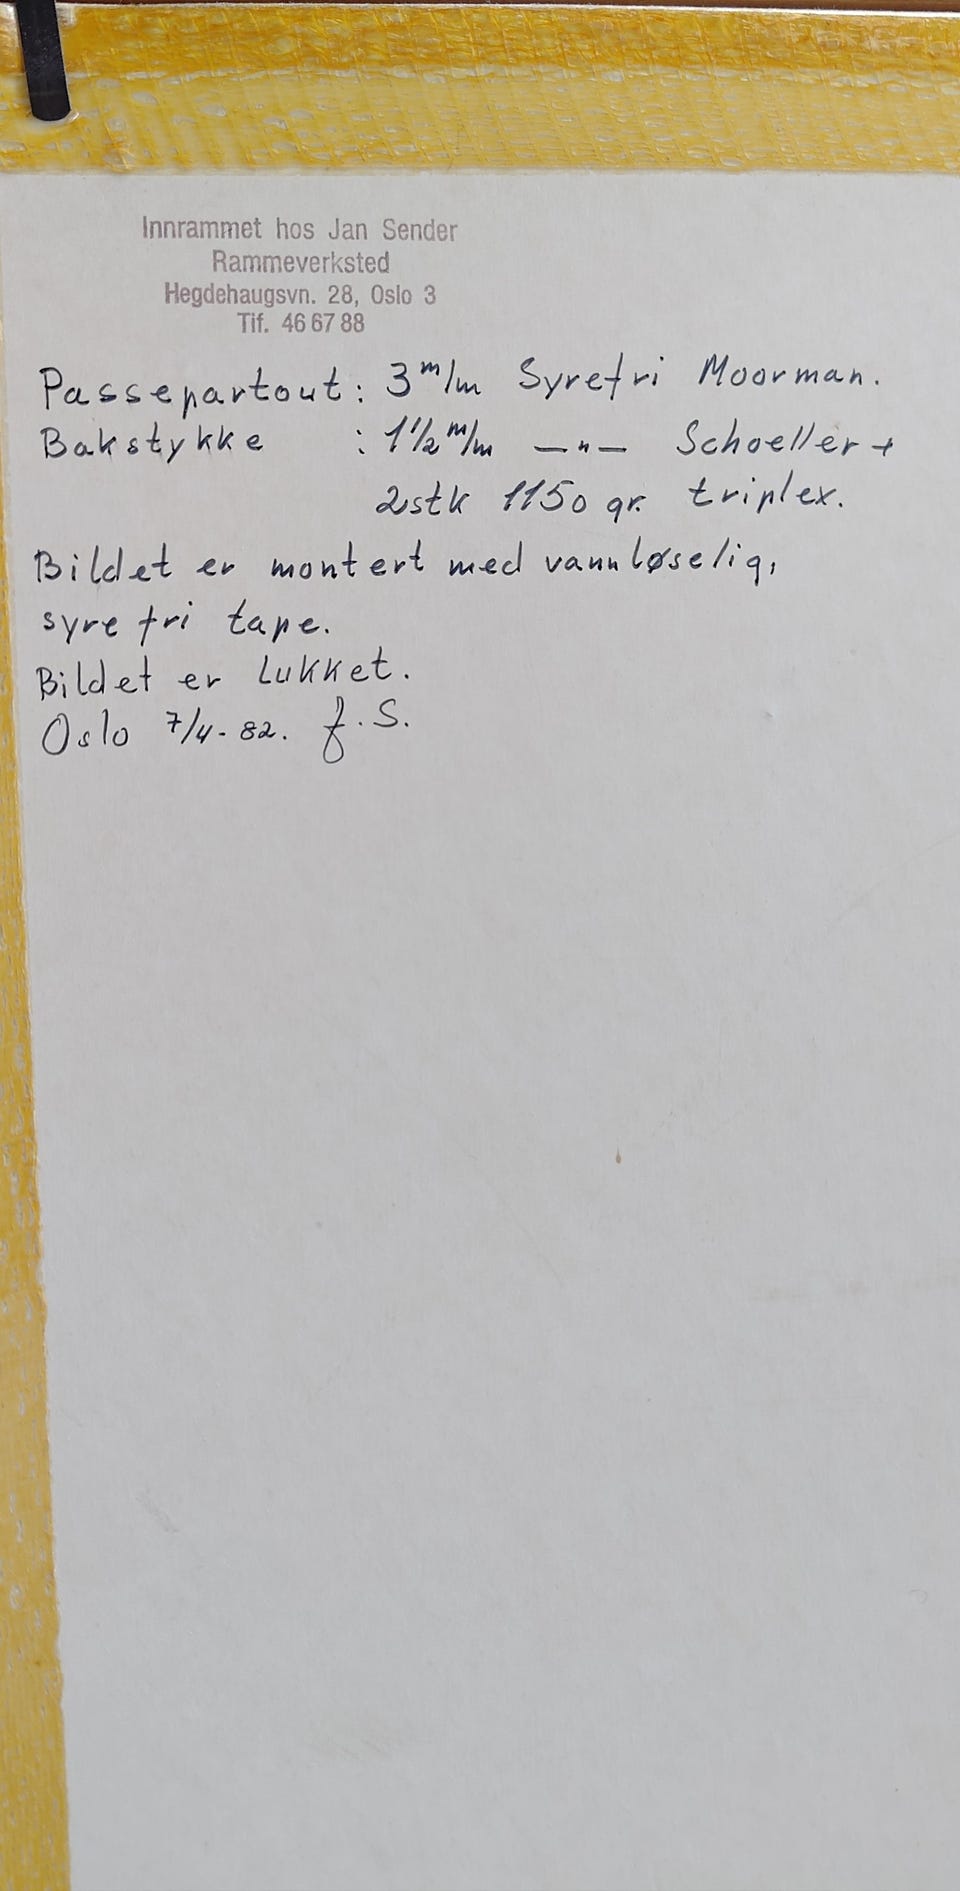 Innrammet hos Jan Sender
Rammeverksted
Hegdehaugsvn. 28, Oslo 3
Tlf. 46 67 88
Passepartout: 3 m/m Syrefri Moorman.
Bakstykke : 1 1/2 m/m —"— Schoeller +
2stk 1150 gr. triplex.
Bildet er montert med vannløselig,
syrefri tape.
Bildet er lukket.
Oslo 7/4-82. J.S.